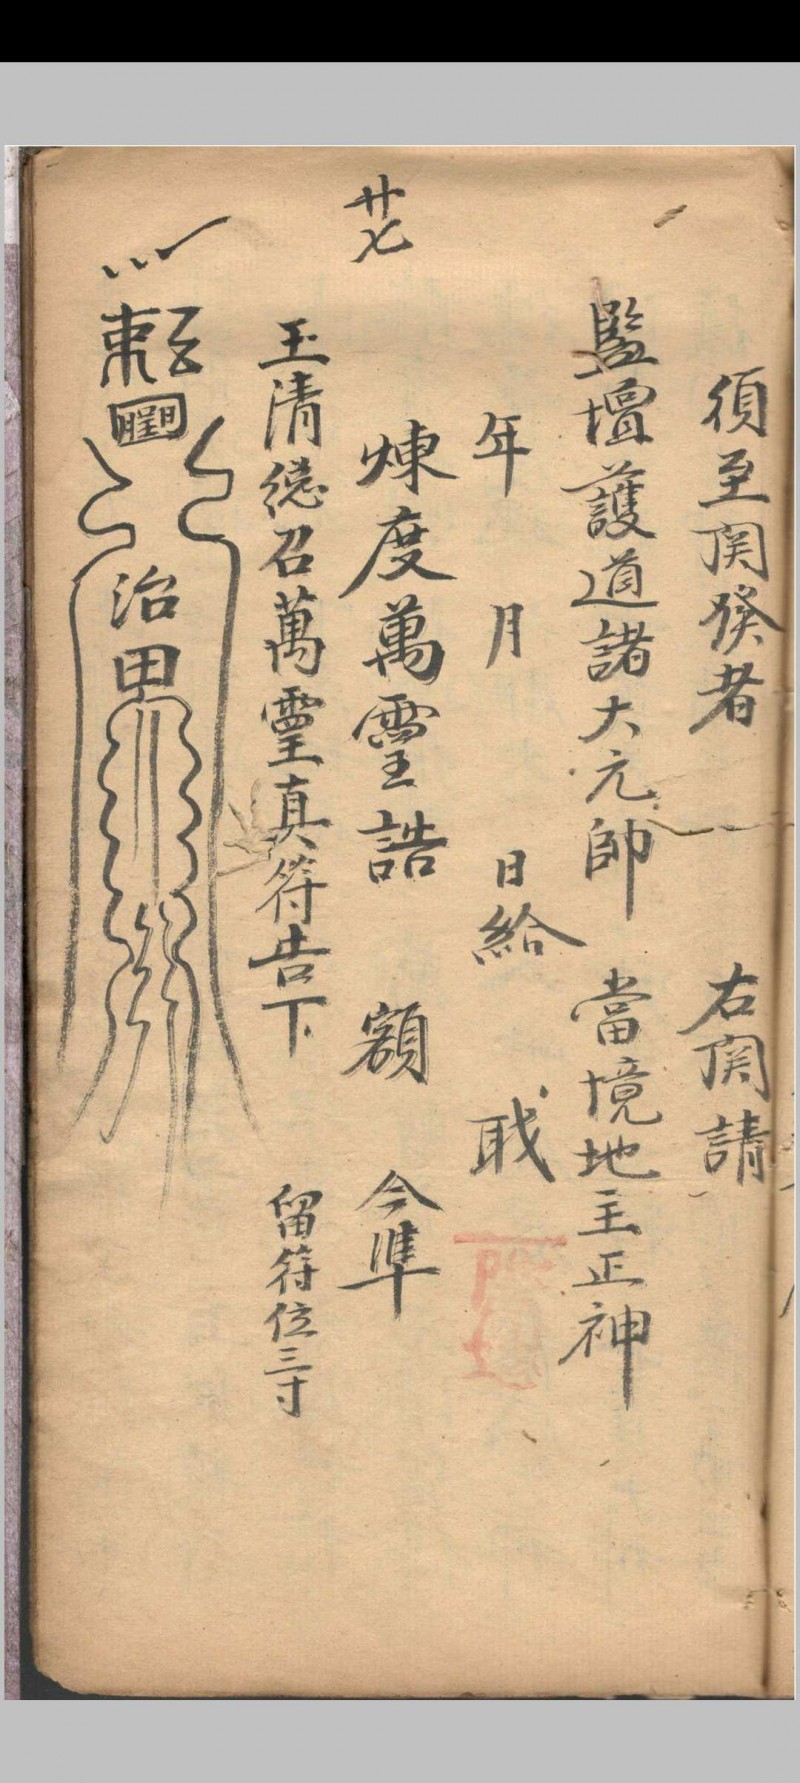 須至関發者 右関請
監壇護道諸大元帥 當境地主正神
年 月 日給 职
廿七
煉度萬靈誥 額 今準
玉清總召萬靈真符告下 留符位三寸
治甲